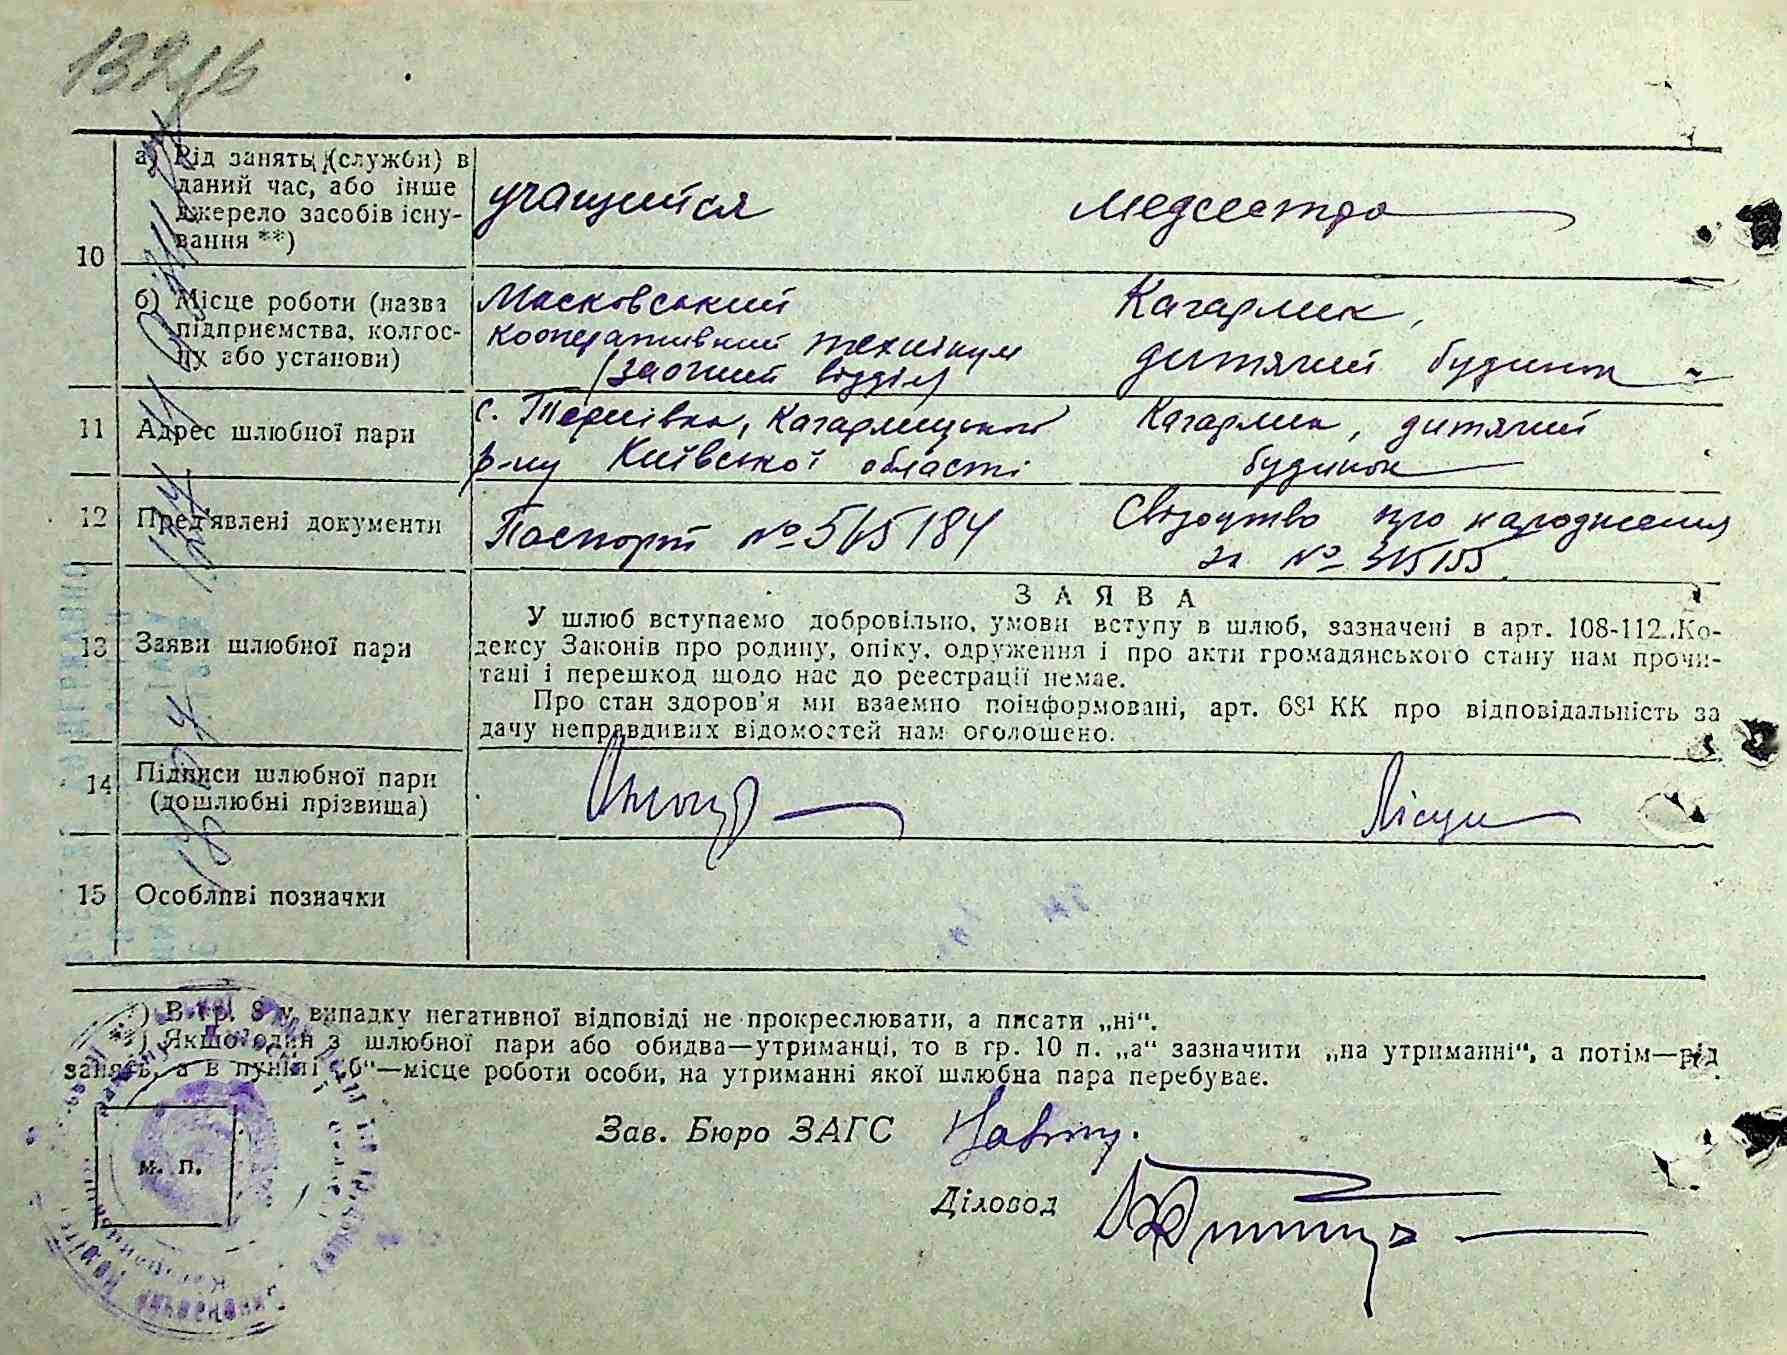 а) Рід занять (служби) в
даний час, або інше
джерело засобів існу-
вання **)
10
учащийся
медсестра
б) Місце роботи (назва
підприємства, колгос-
пу або установи)
Московський
кооперативний технікум
(заочний відділ)
Кагарлик,
дитячий будинок
11
Адрес шлюбної пари
с. Тернівка, Кагарлицького
р-ну Київської області
Кагарлик, дитячий
будинок
12
Пред'явлені документи
Паспорт № 565184
Свідоцтво про народження
за № 315155
13
Заяви шлюбної пари
ЗАЯВА
У шлюб вступаємо добровільно, умови вступу в шлюб, зазначені в арт. 108-112 Ко-
дексу Законів про родину, опіку, одруження і про акти громадянського стану нам прочи-
тані і перешкод щодо нас до реєстрації немає.
Про стан здоров'я ми взаємно поінформовані, арт. 68¹ КК про відповідальність за
дачу неправдивих відомостей нам оголошено.
14
Підписи шлюбної пари
(дошлюбні прізвища)
15
Особливі позначки
*) В гр. 8 у випадку негативної відповіді не прокреслювати, а писати „ні“.
**) Якщо один з шлюбної пари або обидва—утриманці, то в гр. 10 п. „а“ зазначити „на утриманні“, а потім—рід
занять, а в пункті „б“—місце роботи особи, на утриманні якої шлюбна пара перебуває.
Зав. Бюро ЗАГС
Діловод
м. п.